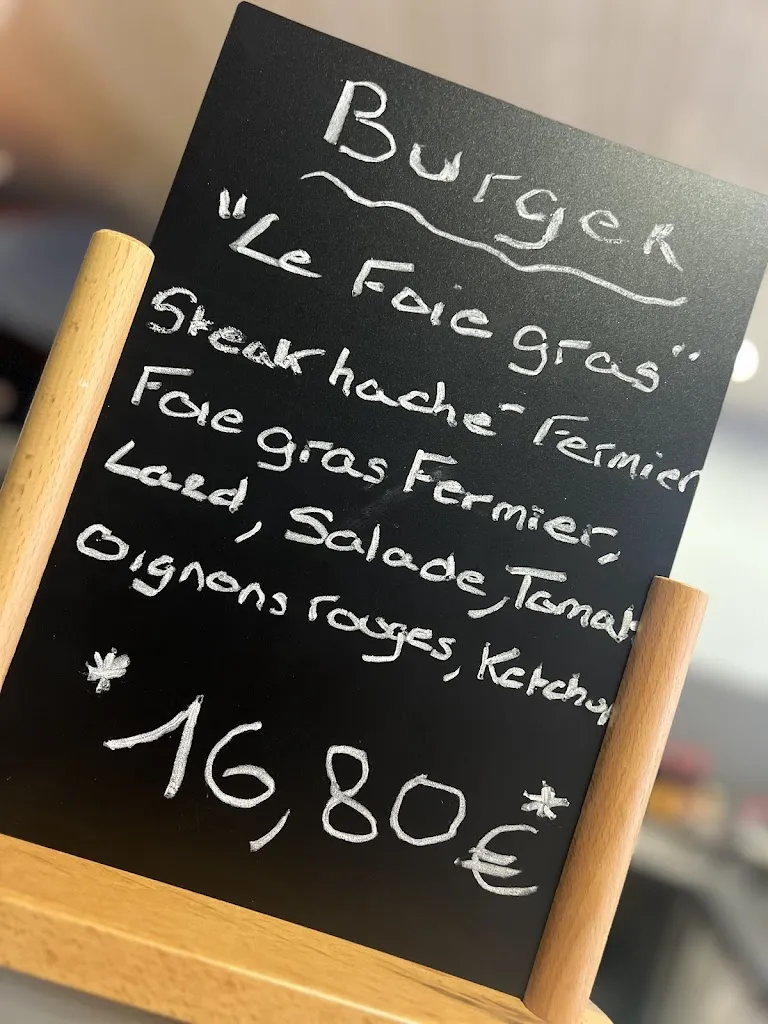 Burger
"Le Foie gras"
Steak haché Fermier
Foie gras Fermier,
Lard, Salade, Tomat
Oignons rouges, Ketchup
* 16,80€ *